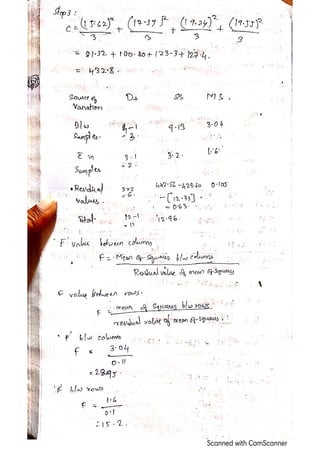 Step 3 :
C = (15.62)² / 3 + (12.39)² / 3 + (19.24)² / 3 + (19.55)² / 3
= 81.32 + 100.80 + 123.3 + 127.4.
= 432.8.
Source of Variation Ds SS MS.
B/w Samples. 4-1 = 3. 9.13 3.04
Samples 3-1 = 2. 3.2. 1.6
• Residual values. 3x2 = 6. 442.56 - 429.60 0.105
- [12.33]
= 0.63
Total. 12-1 = 11 12.96.
F value between columns
F = Mean of Squares b/w columns
Residual value of mean of squares
F value between rows.
F = mean of Squares b/w rows.
residual value of mean of squares.
F b/w columns
F = 3.04
0.11
= 28.95.
F b/w rows
F = 1.6
0.1
= 15.2.
Scanned with CamScanner